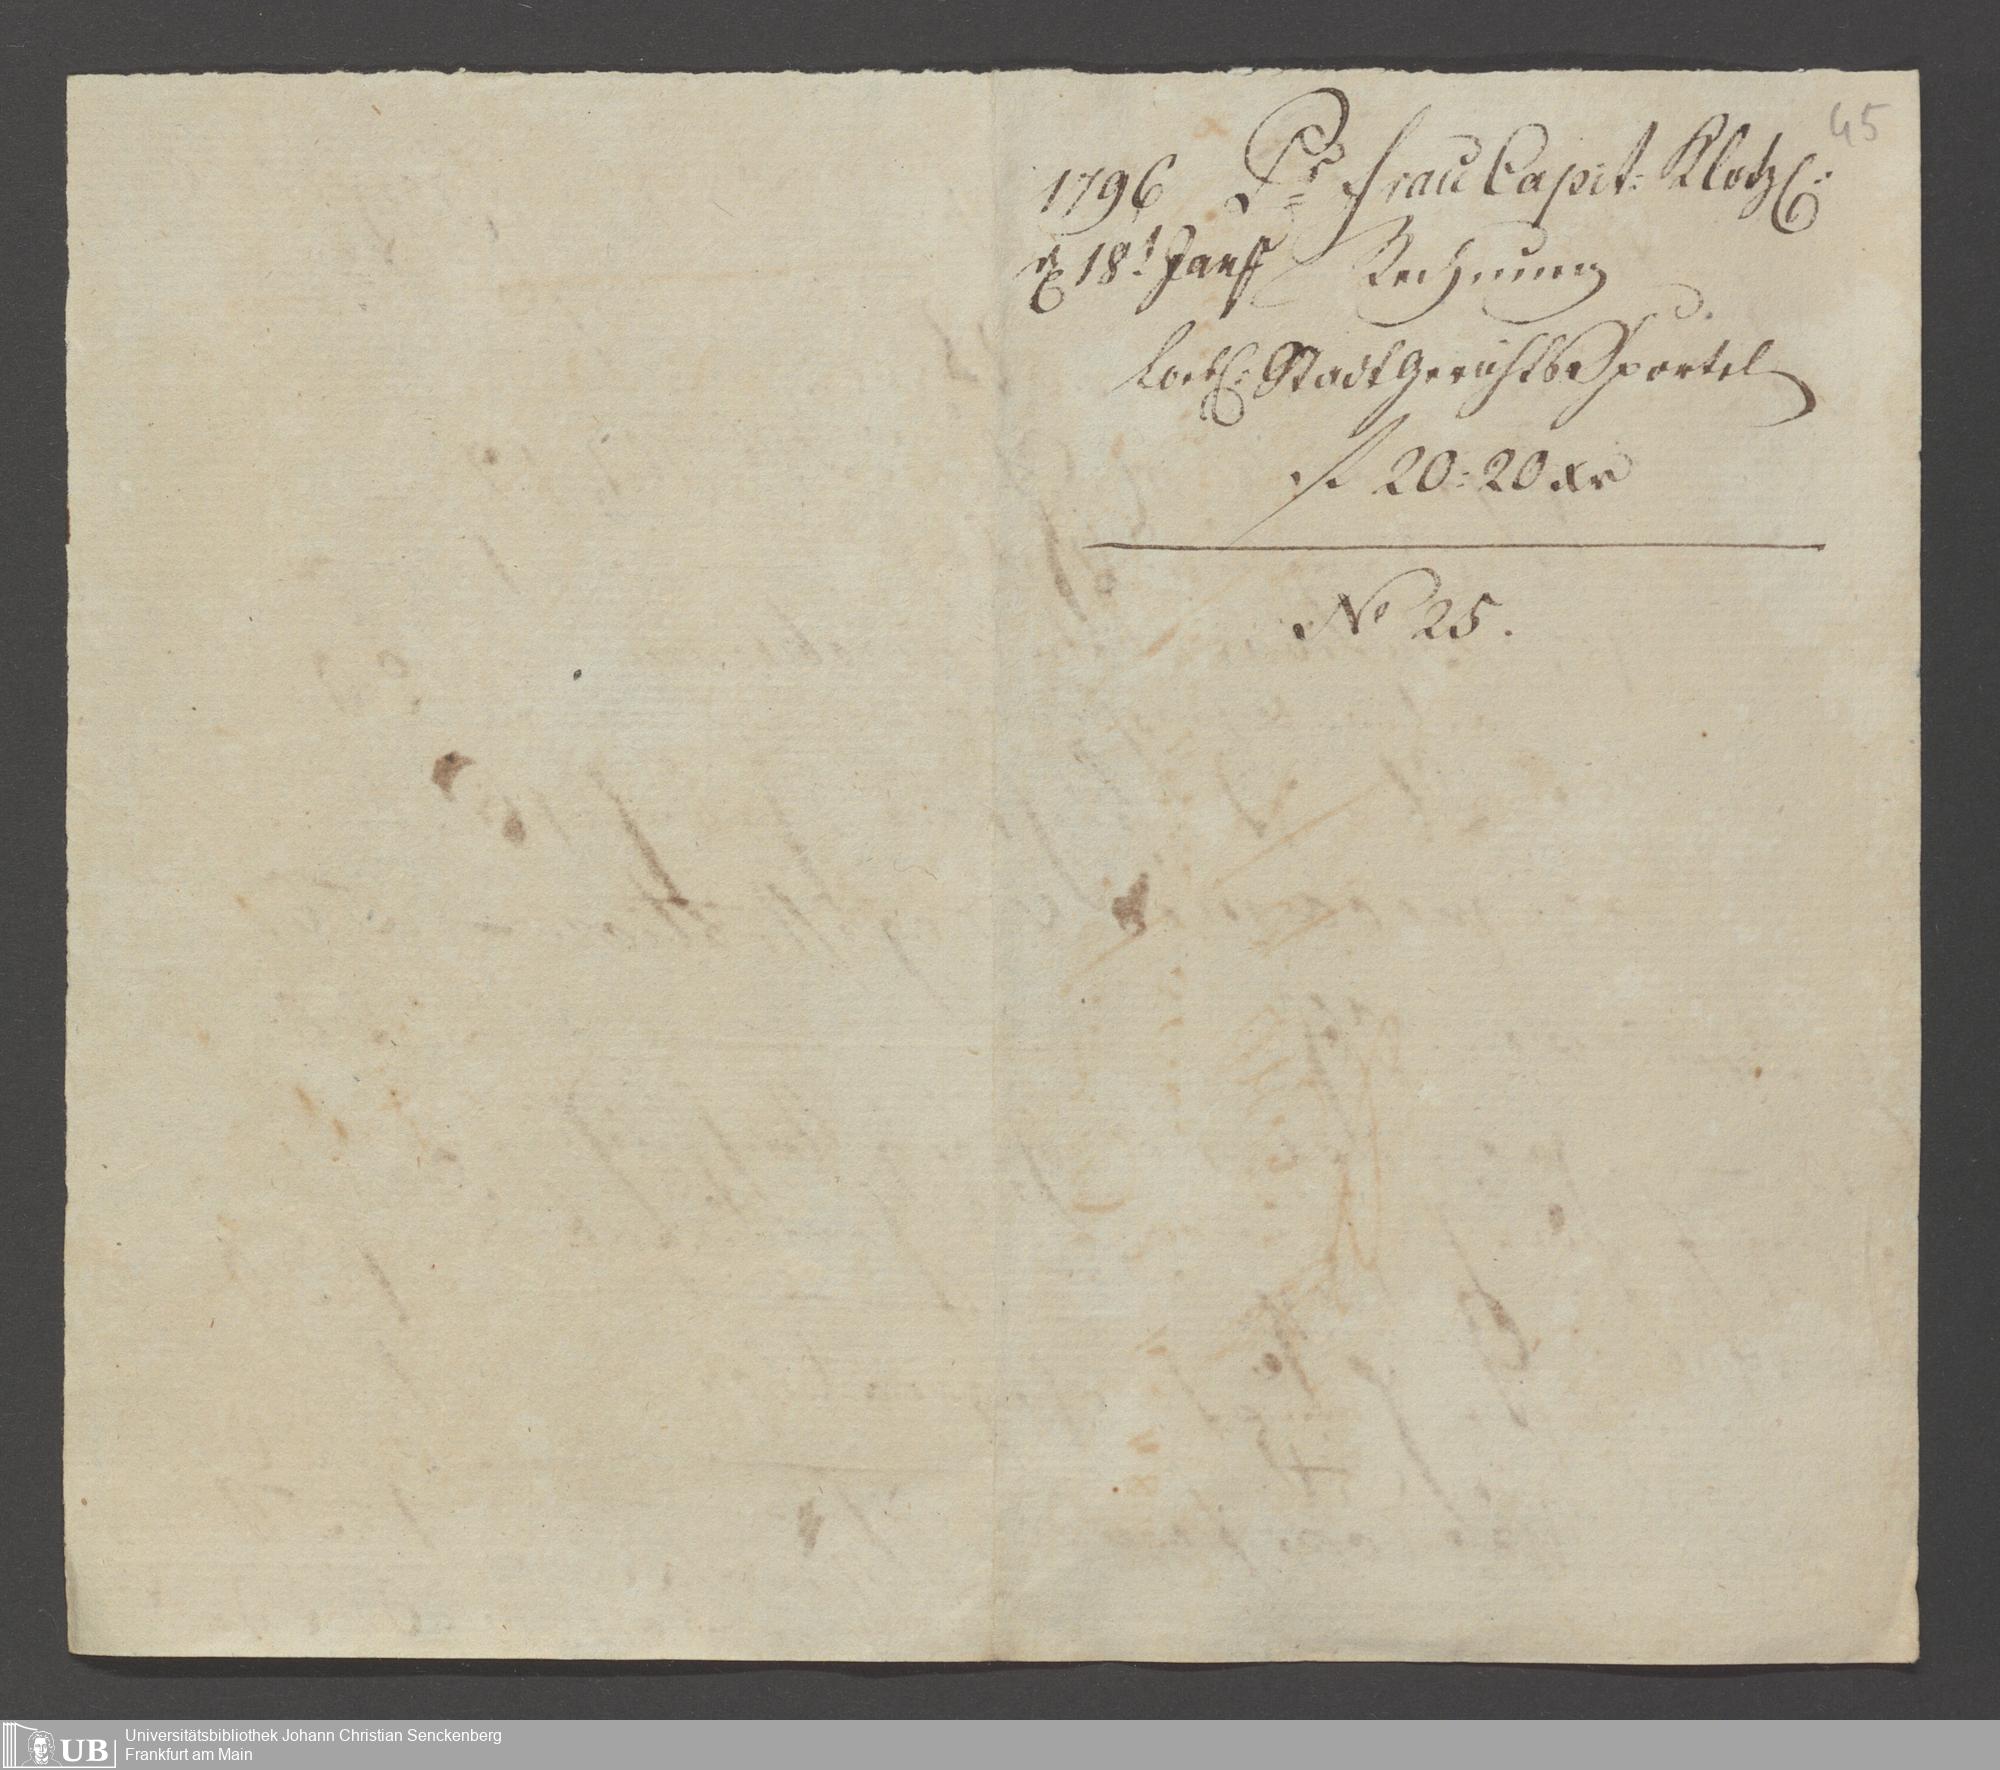 45
1796 Pr Frau Capit: Klotz
d 18t Jan Rechnung
Stadtgerichts Sportel
f 20:20 xr
No 25.
UB
Universitätsbibliothek Johann Christian Senckenberg
Frankfurt am Main